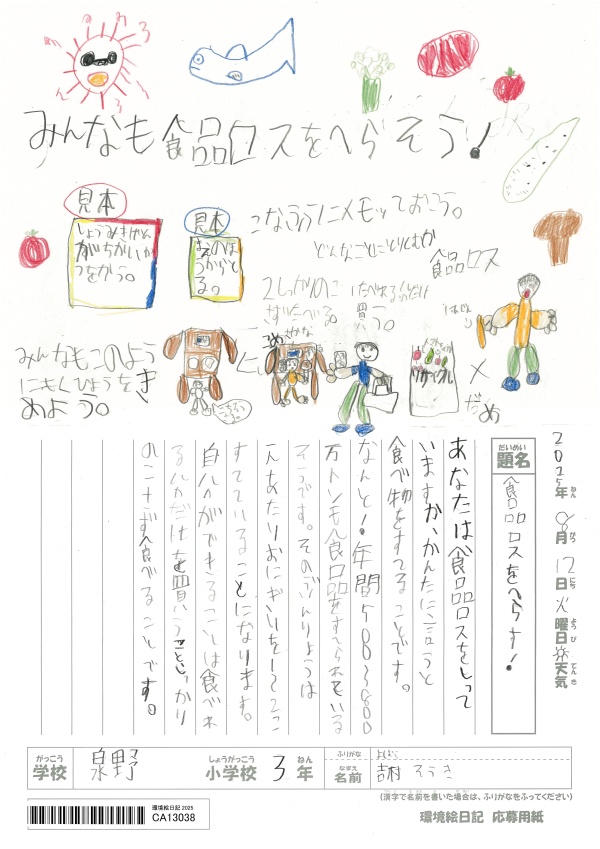 みんなも食品ロスをへらそう!
見本
しょうみきげん
がちがいか
つをかう。
見本
なえのは
うからと
る。
こなふうにメモッておこう。
どんなことにとりくむか
食品ロス
2しっかりのこ
さずたべる。
たべれるぶんだけ
買う。
みんなもこのよう
にもくひょうをき
めよう。
リサイクル
×
だめ
2025年8月12日火曜日天気
ねん がつ にち ようび てんき
だいめい
題名
食品ロスをへらす!
あなたは食品ロスをしって
いますか、かんたんに言うと
食べ物をすてることです。
なんと!年間583800
万トンも食品をすてられている
そうです。そのぶんりょうは
一人あたりおにぎりを1こ
すてていることになります。
自分ができることは食べれ
る分だけを買うこと、しっかり
のこさず食べることです。
がっこう
学校
泉野
しょうがっこう
小学校
3
ねん
年
ふりがな
なまえ
名前
吉村 そうき
(漢字で名前を書いた場合は、ふりがなをふってください)
環境絵日記 2025
CA13038
環境絵日記 応募用紙